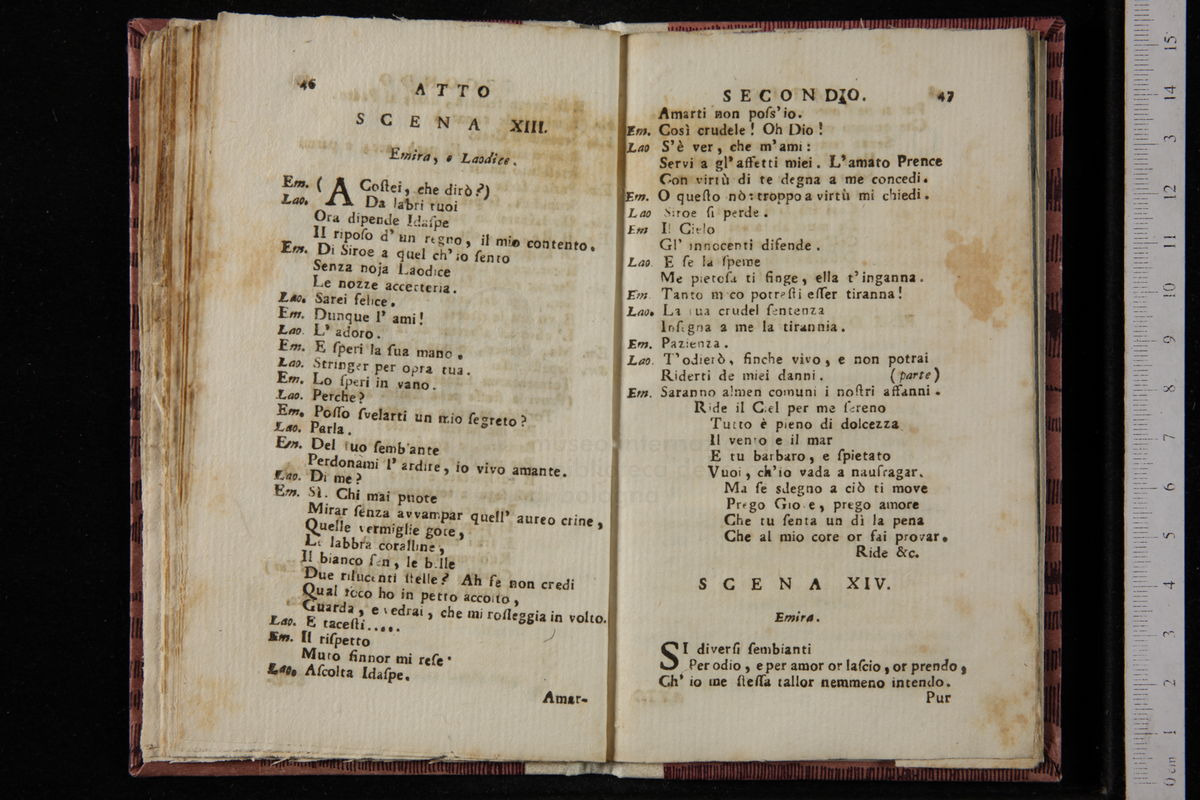 46
ATTO
SCENA XIII.
Emira, e Laodice.
Em. ( A Coſtei, che dirò?)
Lao. Da labri tuoi
Ora dipende Idaſpe
Il ripoſo d' un regno, il mio contento.
Em. Di Siroe a quel ch' io ſento
Senza noja Laodice
Le nozze accetteria.
Lao. Sarei felice.
Em. Dunque l' ami!
Lao. L' adoro.
Em. E ſperi la ſua mano.
Lao. Stringer per opra tua.
Em. Lo ſperi in vano.
Lao. Perche?
Em. Poſſo ſvelarti un mio ſegreto?
Lao. Parla.
Em. Del tuo ſembiante
Perdonami l' ardire, io vivo amante.
Lao. Di me?
Em. Sì. Chi mai puote
Mirar ſenza avvampar quell' aureo crine,
Quelle vermiglie gote,
Le labbra coralline,
Il bianco ſen, le belle
Due rilucenti ſtelle? Ah ſe non credi
Qual foco ho in petto accolto,
Guarda, e vedrai, che mi roſſeggia in volto.
Lao. E taceſti.....
Em. Il riſpetto
Muto finnor mi reſe.
Lao. Aſcolta Idaſpe.
Amar-
SECONDIO. 47
Amarti non poſs'io.
Em. Così crudele! Oh Dio!
Lao S'è ver, che m'ami:
Servi a gl'affetti miei. L'amato Prence
Con virtù di te degna a me concedi.
Em. O queſto nò: troppo a virtù mi chiedi.
Lao Siroe ſi perde.
Em Il Cielo
Gl' innocenti difende.
Lao. E ſe la ſpeme
Me pietoſa ti finge, ella t'inganna.
Em. Tanto meco potreſti eſſer tiranna!
Lao. La tua crudel ſentenza
Inſegna a me la tirannia.
Em. Pazienza.
Lao. T'odierò, finche vivo, e non potrai
Riderti de miei danni. (parte)
Em. Saranno almen comuni i noſtri affanni.
Ride il Ciel per me ſereno
Tutto è pieno di dolcezza
Il vento e il mar
E tu barbaro, e ſpietato
Vuoi, ch'io vada a naufragar.
Ma ſe sdegno a ciò ti move
Prego Giove, prego amore
Che tu ſenta un dì la pena
Che al mio core or fai provar.
Ride &c.
SCENA XIV.
Emira.
SI diverſi ſembianti
Per odio, e per amor or laſcio, or prendo,
Ch' io me ſteſſa tallor nemmeno intendo.
Pur